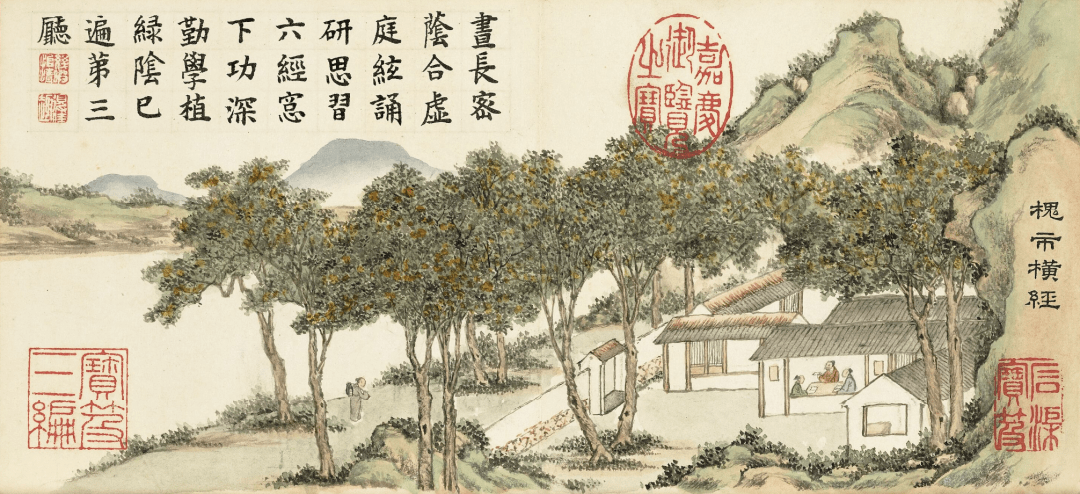 槐市橫經
石渠
寶笈
嘉慶
御覽
之寶
晝長密
蔭合虛
庭絃誦
研思習
六經窓
下功深
勤學植
緑隂已
遍第三
廳
寶笈
三編